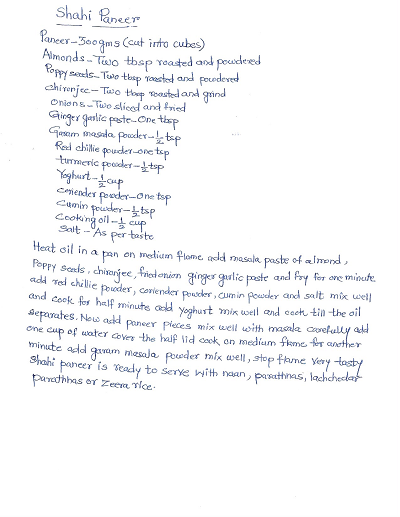 Shahi Paneer
Paneer-500gms (cut into cubes)
Almonds-Two tbsp roasted and powdered
Poppy seeds-Two tbsp roasted and powdered
chironjee-Two tbsp roasted and grind
Onions-Two sliced and fried
Ginger garlic paste-One tbsp
Garam masala powder-1/2 tsp
Red chillie powder-one tsp
turmeric powder-1/2 tsp
Yoghurt-1/2 cup
coriender powder-One tsp
Cumin powder-1/2 tsp
Cooking oil-1/2 cup
Salt-As per taste
Heat oil in a pan on medium flame add masala paste of almond,
Poppy seeds, chiranjee, fried onion ginger garlic paste and fry for one minute
add red chillie powder, coriender powder, cumin powder and salt mix well
and cook for half minute add yoghurt mix well and cook till the oil
separates. Now add paneer pieces mix well with masala carefully add
one cup of water cover the half lid cook on medium flame for another
minute add garam masala powder mix well, stop flame very tasty
Shahi paneer is ready to serve with naan, parathhas, lachchedar
parathhas or Zeera rice.